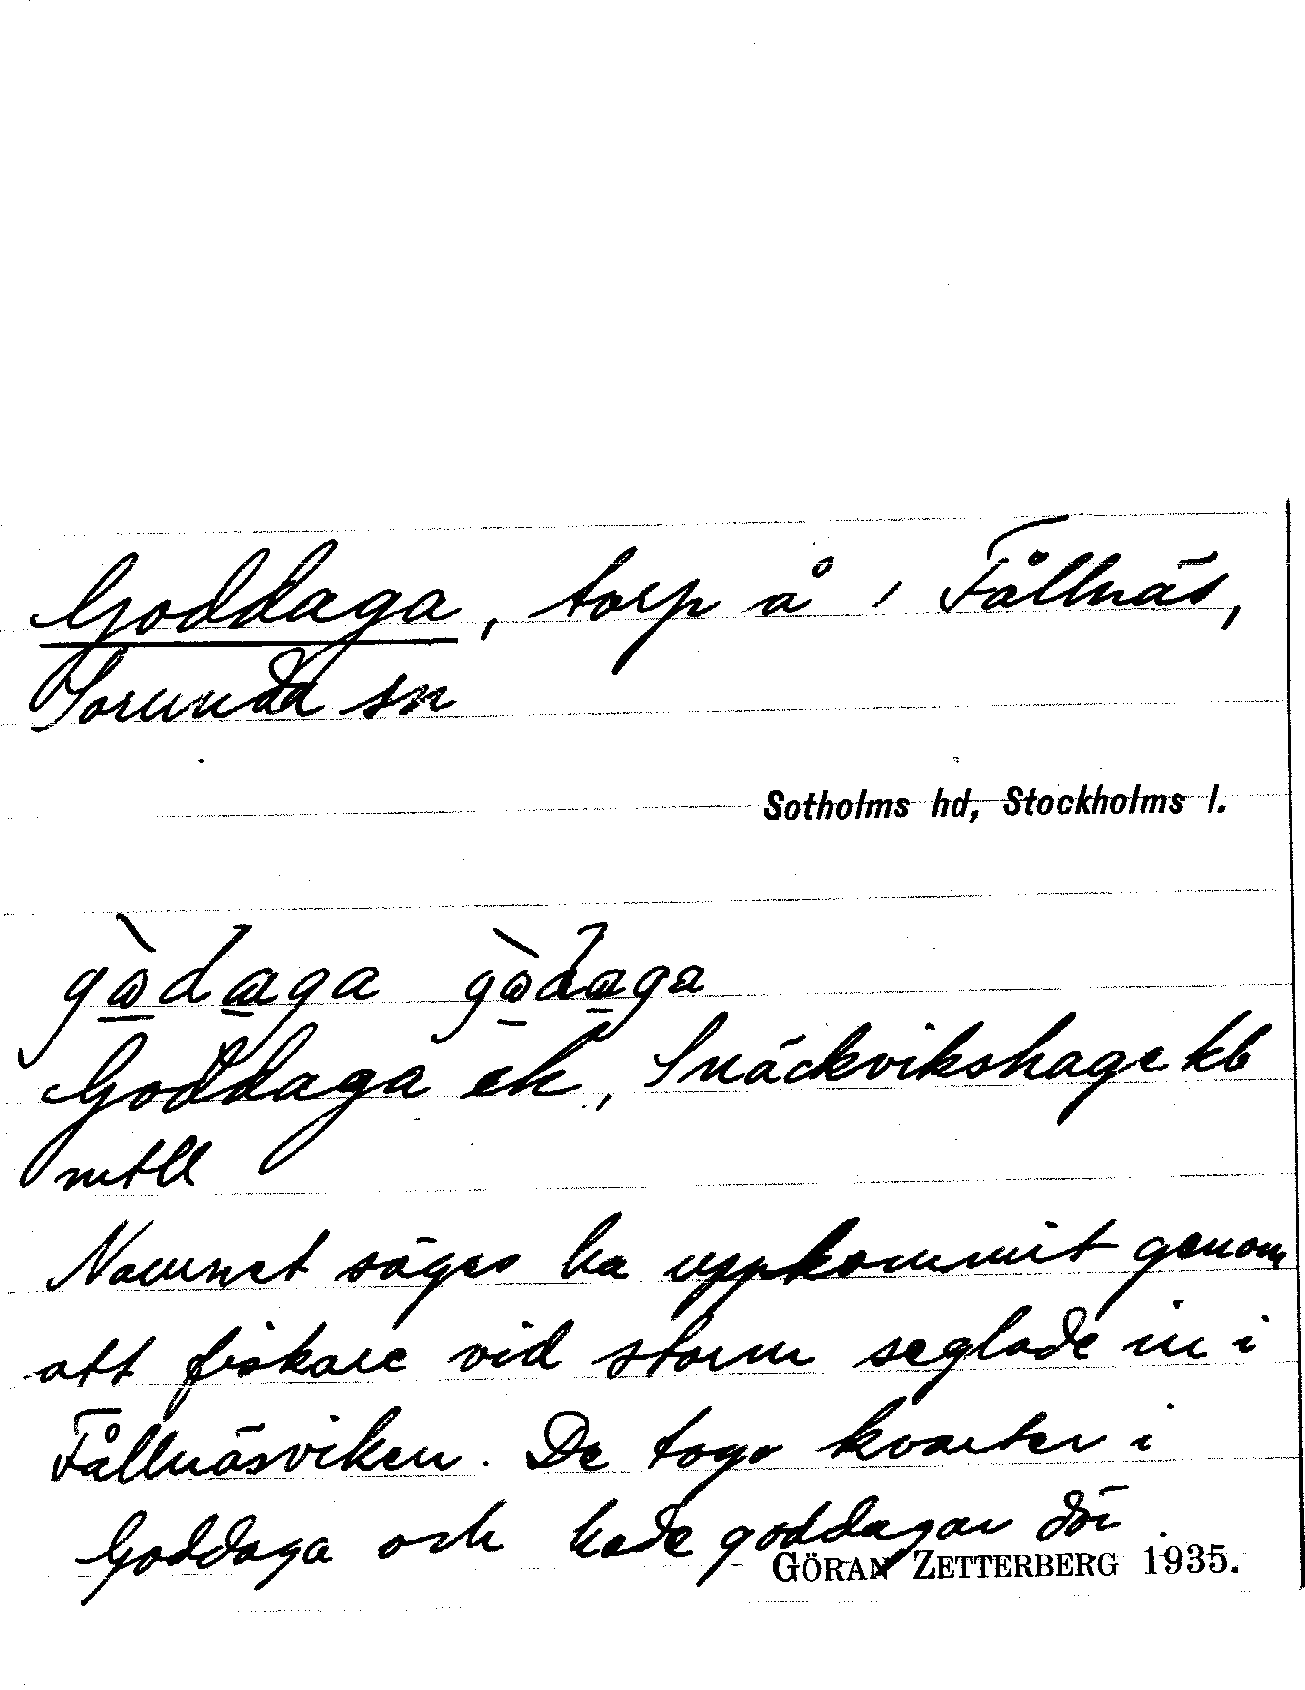 Goddaga, torp å 1 Fållnäs,
Sorunda sn
Sotholms hd, Stockholms l.
Goddaga ek, Snäckvikshage kb
mtll
Namnet säges ha uppkommit genom
att fiskare vid storm seglade in i
Fållnäsviken. De togo kvarter i
Goddaga och hade goddagar där
GÖRAN ZETTERBERG 1935.